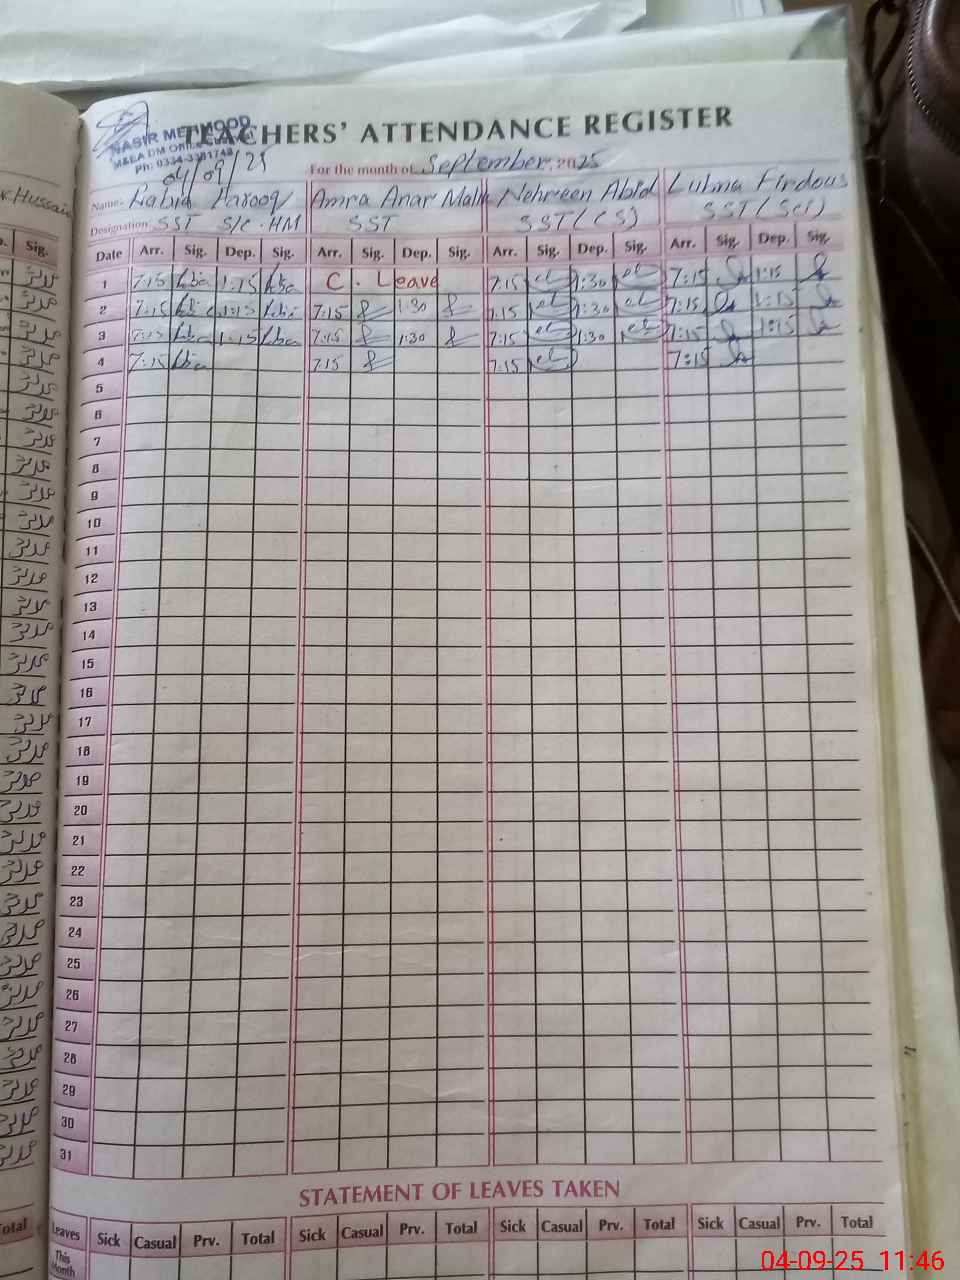 TEACHERS' ATTENDANCE REGISTER
NASIR MEHMOOD
M&EA DM Office
Ph: 0334-3381748
04/09/25
For the month of September, 2025
Name: Rabia Farooq Amra Anar Malik Nehreen Abid Lubna Firdous
Designation: SST S/C . HM SST SST (CS) SST (Sci)
Date Arr. Sig. Dep. Sig. Arr. Sig. Dep. Sig. Arr. Sig. Dep. Sig. Arr. Sig. Dep. Sig.
1 7:15 1:15 C. Leave 7:15 1:30 7:15 1:15
2 7:15 1:15 7:15 1:30 7:15 1:30 7:15 1:15
3 7:15 1:15 7:15 1:30 7:15 1:30 7:15 1:15
4 7:15 7:15 7:15 7:15
5
6
7
8
9
10
11
12
13
14
15
16
17
18
19
20
21
22
23
24
25
26
27
28
29
30
31
STATEMENT OF LEAVES TAKEN
Leaves Sick Casual Prv. Total Sick Casual Prv. Total Sick Casual Prv. Total Sick Casual Prv. Total
This
Month
Hussain
Sig.
Total
04-09-25 11:46